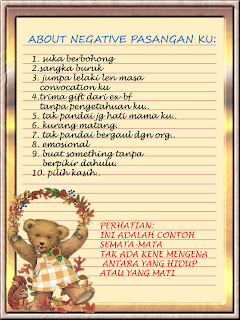 ABOUT NEGATIVE PASANGAN KU:
1. suka berbohong
2.sangka buruk
3. jumpa lelaki len masa
convocation ku
4.trima gift dari ex-bf
tanpa pengetahuan ku..
5. tak pandai jg hati mama ku..
6. kurang matang.
7. tak pandai bergaul dgn org..
8. emosional
9. buat something tanpa
berpikir dahulu.
10. pilih kasih..
PERHATIAN:
INI ADALAH CONTOH
SEMATA-MATA
TAK ADA KENE MENGENA
ANTARA YANG HIDUP
ATAU YANG MATI